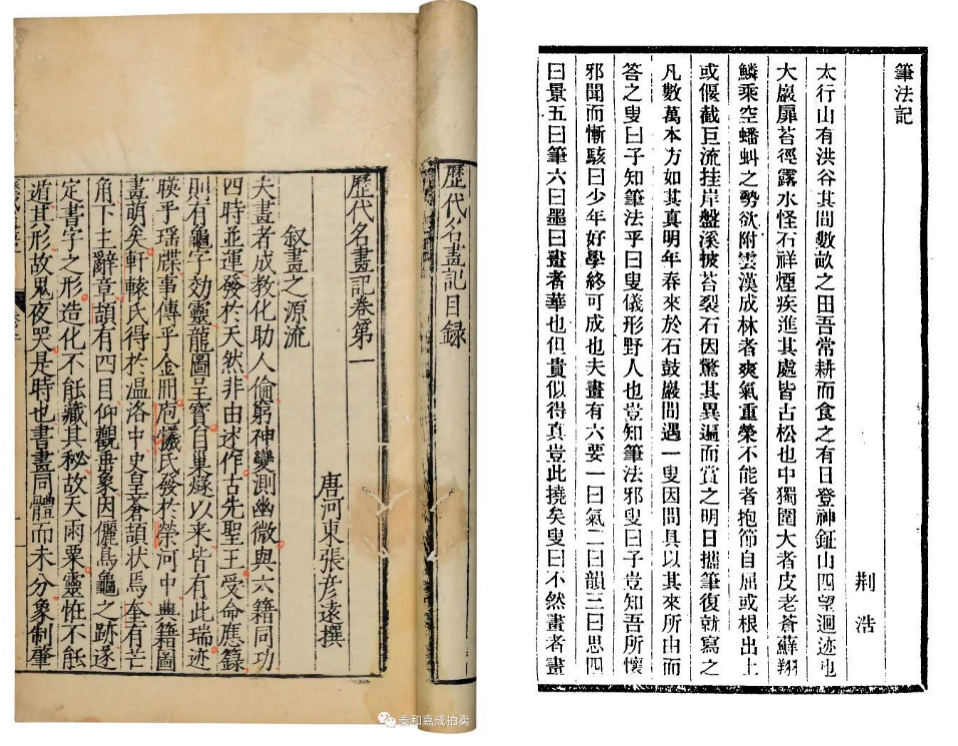 歷代名畫記目録
歷代名畫記卷第一
唐河東張彦遠撰
叙畫之源流
夫畫者成教化助人倫窮神變測幽微與六籍同功
四時並運發於天然非由述作古先聖王受命應籙
則有龜字効靈龍圖呈寳自巢燧以來皆有此瑞迹
暎乎瑶牒事傳乎金冊庖犧氏發於榮河中典籍圖
畫萌矣軒轅氏得於温洛中史皇蒼頡状焉奎有芒
角下主辭章頡有四目仰觀垂象因儷鳥龜之跡遂
定書字之形造化不能藏其秘故天雨粟靈怪不能
遁其形故鬼夜哭是時也書畫同體而未分象制肇
泰和嘉成拍卖
筆法記
荆浩
太行山有洪谷其間數畝之田吾常耕而食之有日登神鉦山四望迴迹也
大巖扉苔徑露水怪石祥煙疾進其處皆古松也中獨圍大者皮老蒼蘚翔
鱗乘空蟠虬之勢欲附雲漢成林者爽氣重榮不能者抱節自屈或根出土
或偃截巨流挂岸盤溪披苔裂石因驚其異遍而賞之明日攜筆復就寫之
凡數萬本方如其真明年春來於石鼓巖間遇一叟因問具以其來所由而
答之叟曰子知筆法乎曰叟儀形野人也豈知筆法邪叟曰子豈知吾所懷
邪聞而慚駭曰少年好學終可成也夫畫有六要一曰氣二曰韻三曰思四
曰景五曰筆六曰墨曰畫者華也但貴似得真豈此撓矣叟曰不然畫者畫